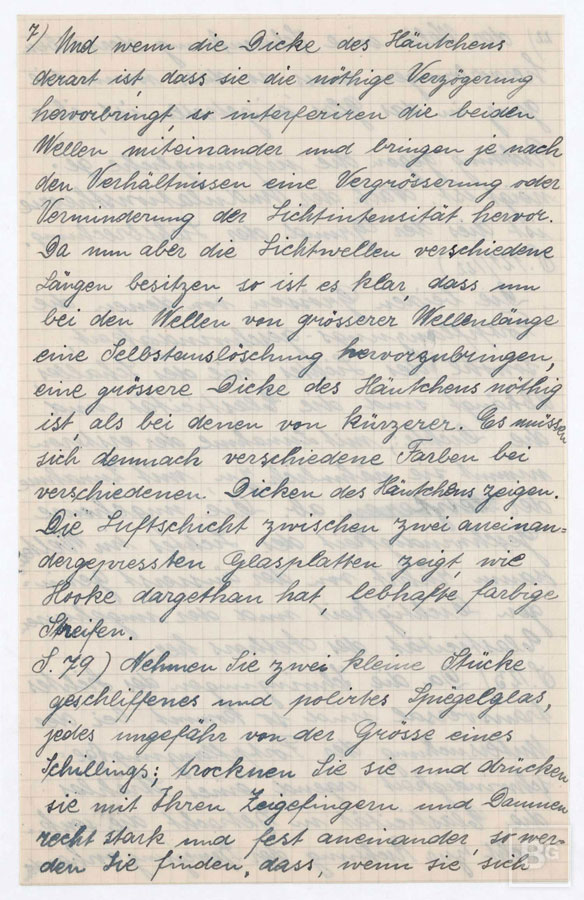 7) Und wenn die Dicke des Häutchens
derart ist, dass sie die nöthige Verzögerung
hervorbringt, so interferiren die beiden
Wellen miteinander und bringen je nach
den Verhältnissen eine Vergrösserung oder
Verminderung der Lichtintensität hervor.
Da nun aber die Lichtwellen verschiedene
Längen besitzen, so ist es klar, dass um
bei den Wellen von grösserer Wellenlänge
eine Selbstauslöschung hervorzubringen,
eine grössere Dicke des Häutchens nöthig
ist, als bei denen von kürzerer. Es müssen
sich demnach verschiedene Farben bei
verschiedenen Dicken des Häutchens zeigen.
Die Luftschicht zwischen zwei aneinan=
dergepressten Glasplatten zeigt, wie
Hooke dargethan hat, lebhafte farbige
Streifen.
S. 79) Nehmen Sie zwei kleine Stücke
geschliffenes und polirtes Spiegelglas,
jedes ungefähr von der Grösse eines
Schillings; trocknen Sie sie und drücken
sie mit Ihren Zeigefingern und Daumen
recht stark und fest aneinander, so wer-
den Sie finden, dass, wenn sie sich
BG